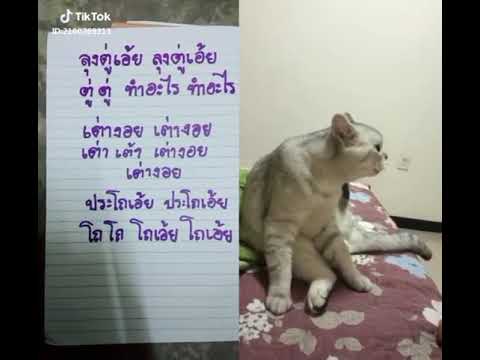 TikTok
ID:2160769211
ลุงตู่เอ้ย ลุงตู่เอ้ย
ตู่ ตู่ ทำอะไร ทำอะไร
เต่างอย เต่างอย
เต่า เต้า เต่างอย
เต่างอย
ประโถเอ้ย ประโถเอ้ย
โถ โถ โถเอ้ย โถเอ้ย